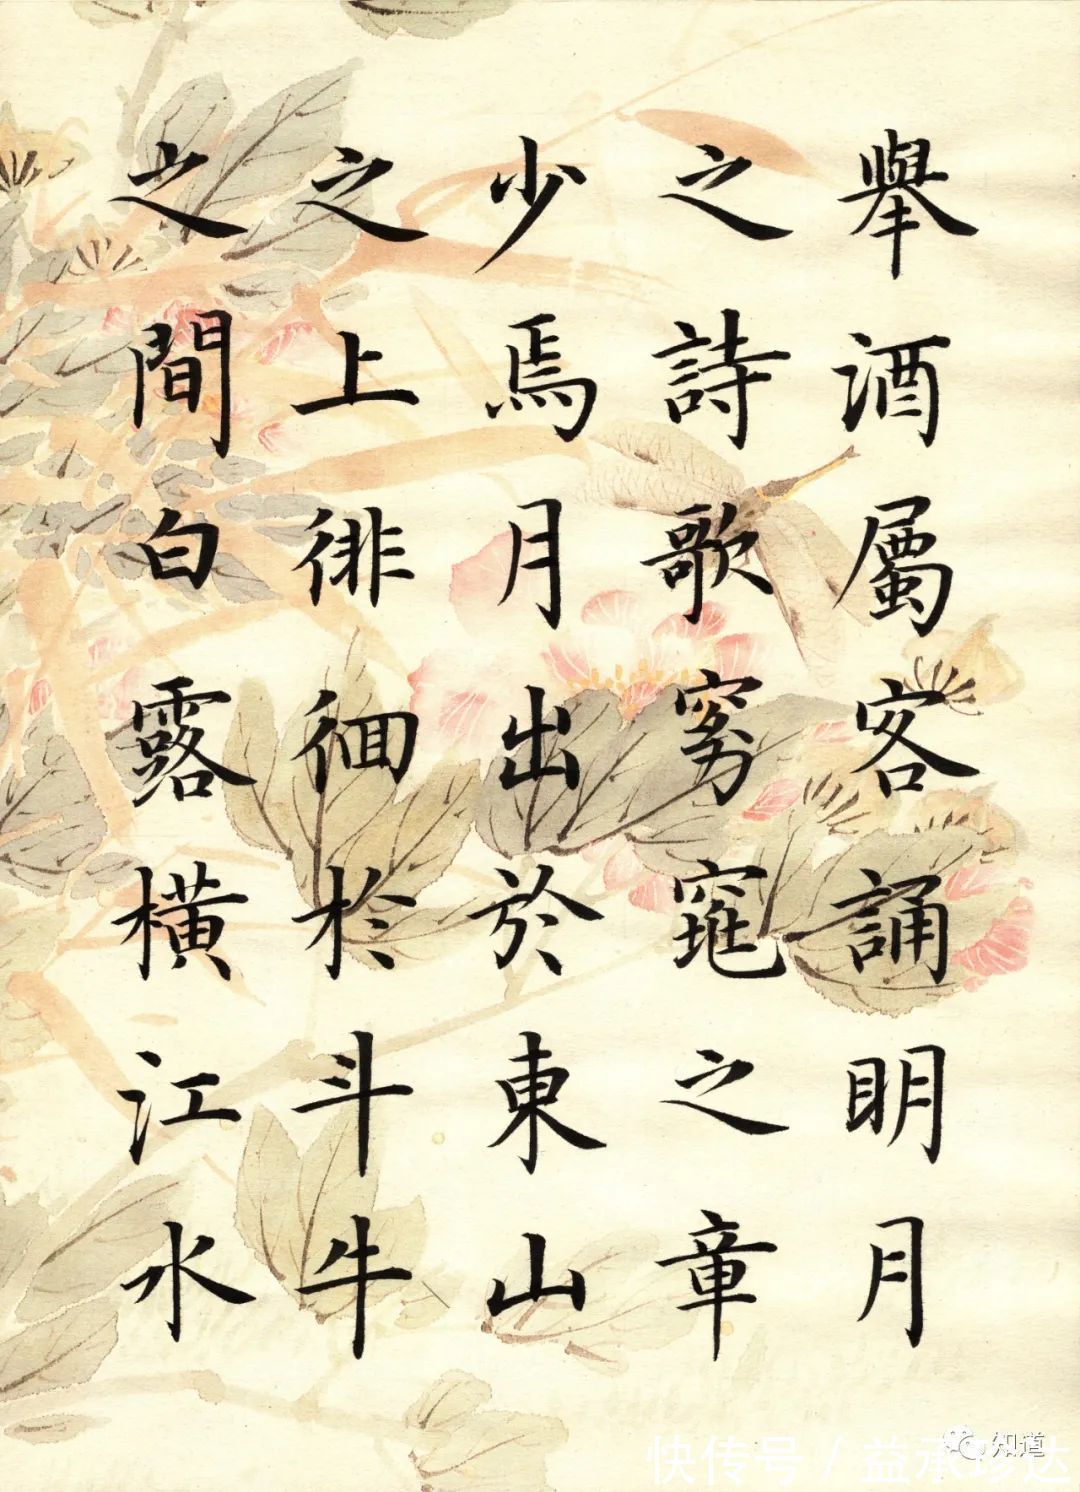 舉酒屬客誦明月
之詩歌窈窕之章
少焉月出於東山
之上徘徊於斗牛
之間白露橫江水
知道
快传号／益承珍达